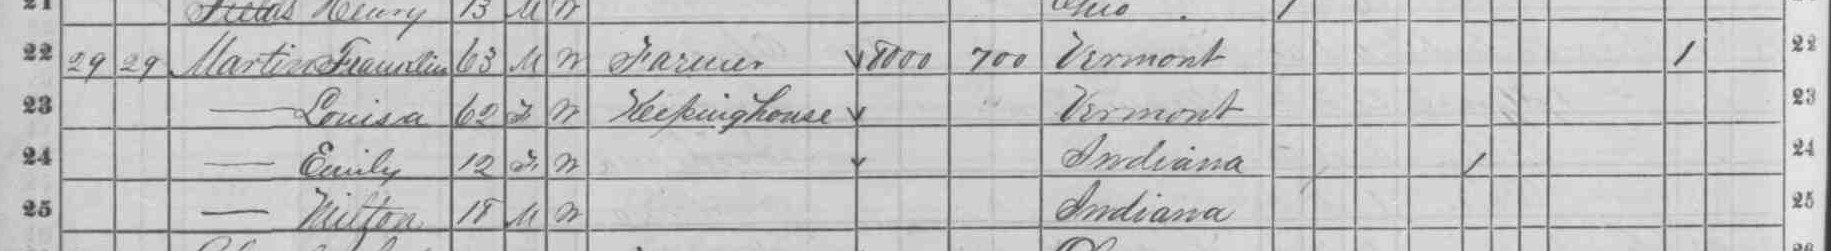 21 Fields Henry 13 M W Ohio . 1
22 29 29 Martin Franklin 63 M W Farmer 8000 700 Vermont 1 22
23 — Louisa 62 F W Keepinghouse Vermont 23
24 — Emily 12 F W Indiana 1 24
25 — Milton 18 M W Indiana 25
26